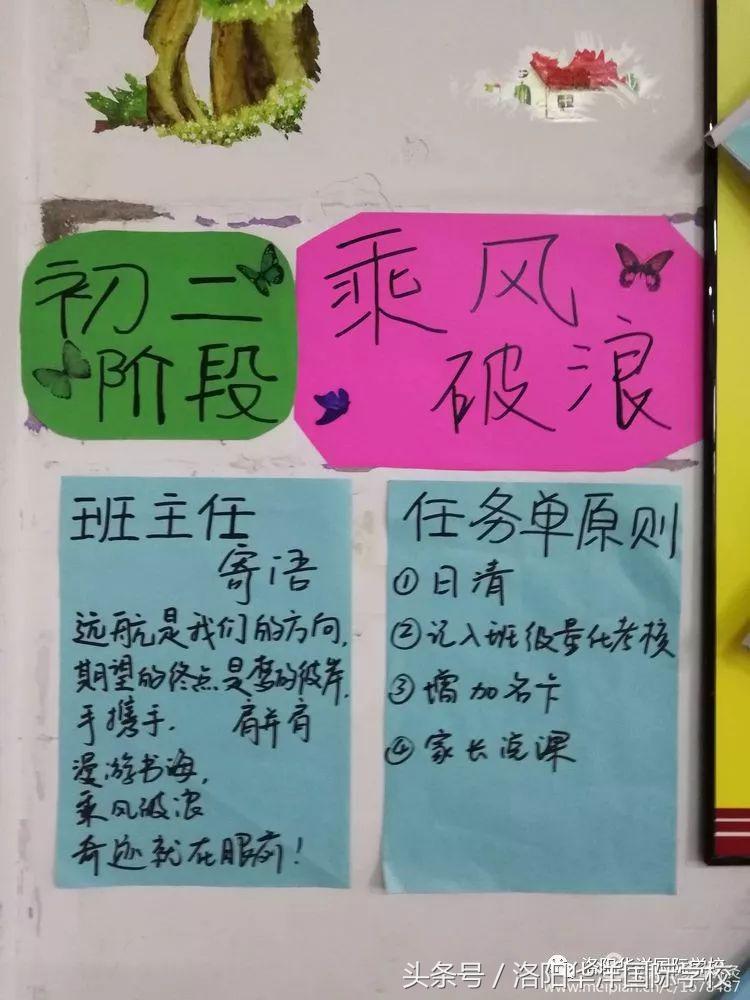 初二
阶段
乘风
破浪
班主任
寄语
远航是我们的方向,
期望的终点是梦的彼岸,
手携手. 肩并肩
漫游书海,
乘风破浪
奇迹就在眼前!
任务单原则
①日清
②记入班级量化考核
③增加名卡
④家长说课
洛阳华洋国际学校
头条号 / 洛阳华洋国际学校